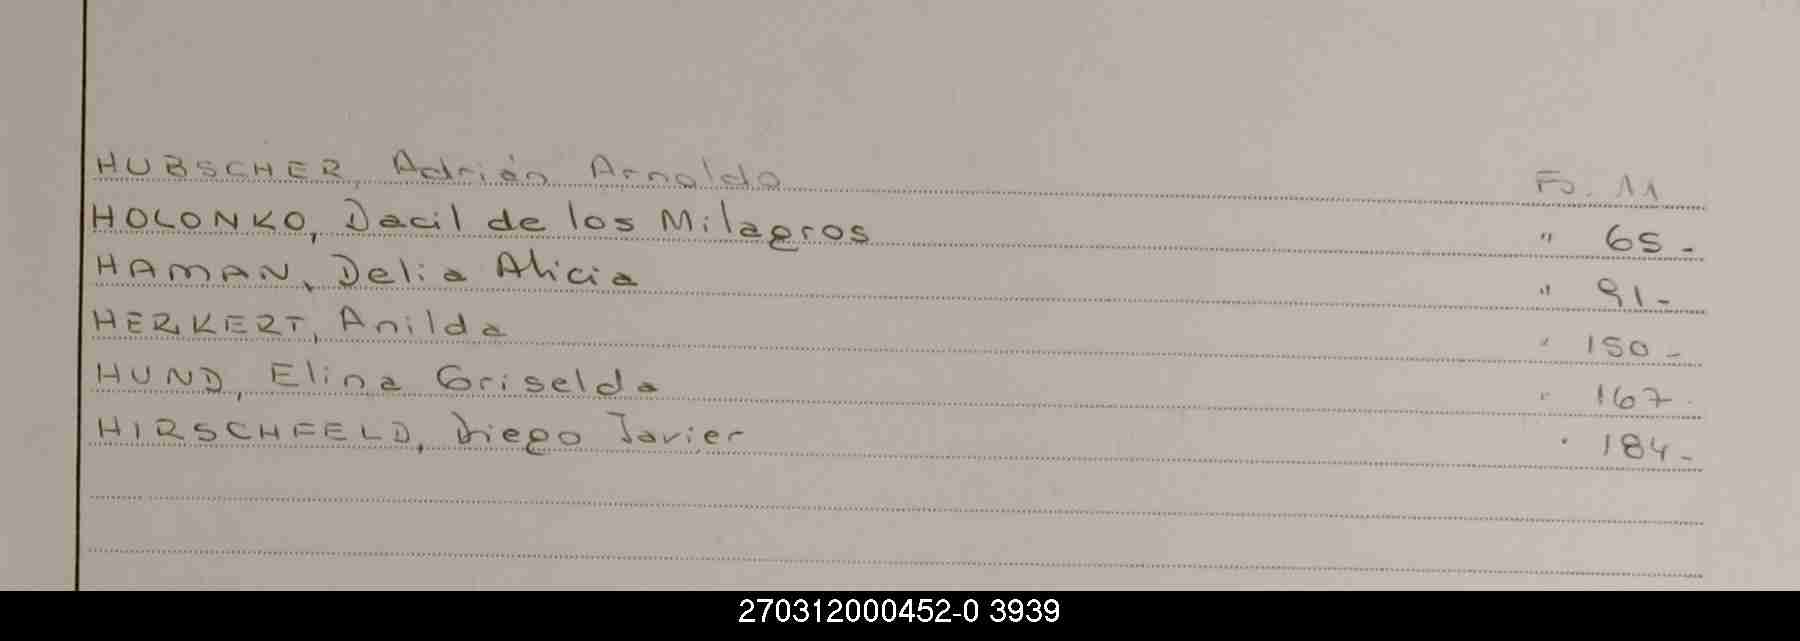 HUBSCHER, Adrián Arnoldo Fo. 11
HOLONKO, Dacil de los Milagros " 65-
HAMAN, Delia Alicia " 91-
HERKERT, Anilda " 150-
HUND, Elina Griselda " 167-
HIRSCHFELD, Diego Javier " 184-
270312000452-0 3939